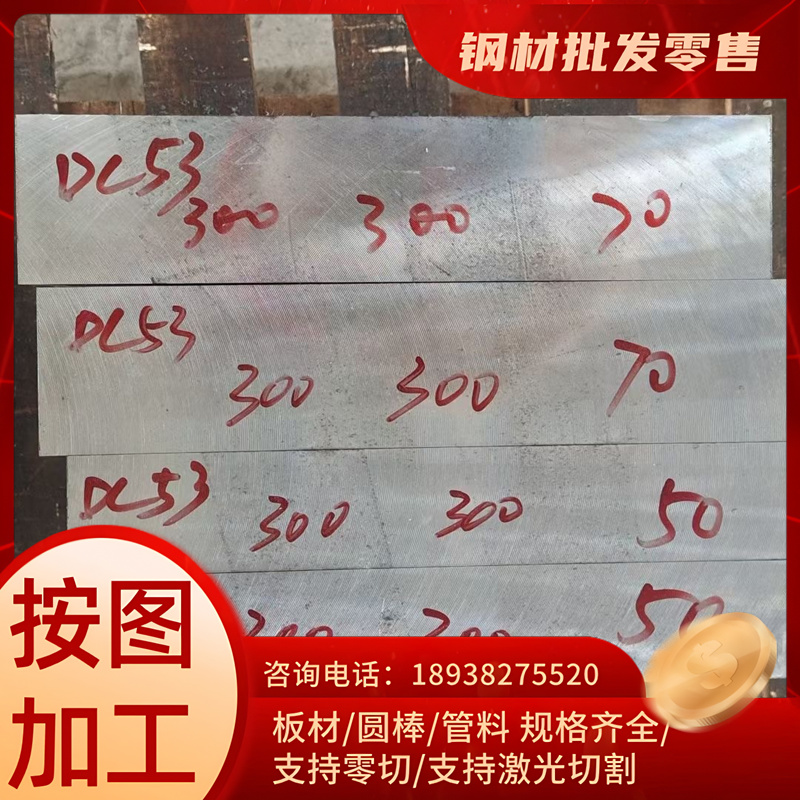 钢材批发零售
DC53
300 300 70
DC53
300 300 70
DC53
300 300 50
300 300 50
按图
加工
咨询电话：18938275520
板材/圆棒/管料 规格齐全/
支持零切/支持激光切割